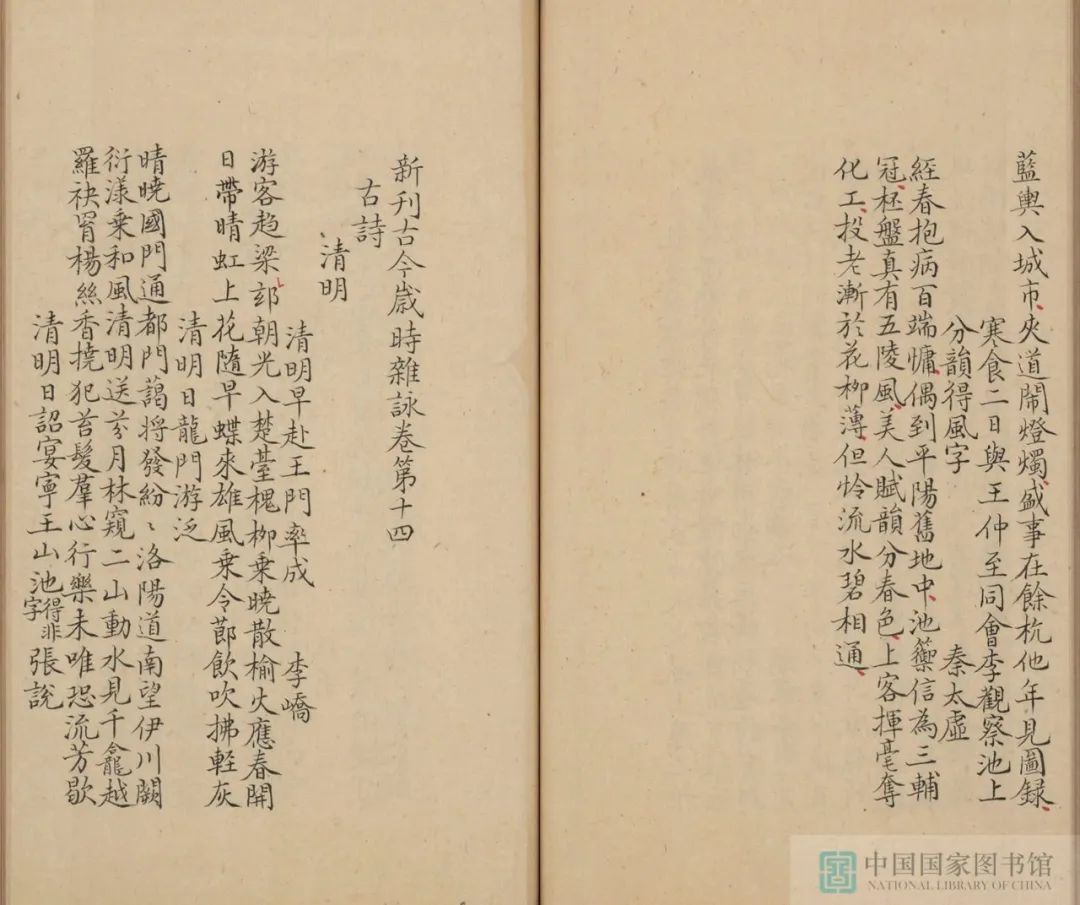 藍輿入城市夾道鬧燈燭盛事在餘杭他年見圖録
寒食二日與王仲至同會李觀察池上
分韻得風字 秦太虛
經春抱病百端慵偶到平陽舊地中池籞信為三輔
冠柸盤真有五陵風美人賦韻分春色上客揮毫奪
化工投老漸於花柳薄但怜流水碧相通
新刋古今歲時雜詠卷第十四
古詩
清明
清明早赴王門率成 李嶠
游客趋梁邸朝光入楚臺槐柳乗曉散榆火應春開
日帶晴虹上花隨早蝶來雄風乗令莭飲吹拂軽灰
清明日龍門游泛
晴曉國門通都門藹将發紛〻洛陽道南望伊川闕
衍漾乗和風清明送芬月林窺二山動水見千龕越
羅袂罥楊絲香橈犯苔髮羣心行樂未唯恐流芳歇
清明日詔宴寕王山池得非字 張說
中国国家图书馆
NATIONAL LIBRARY OF CHINA